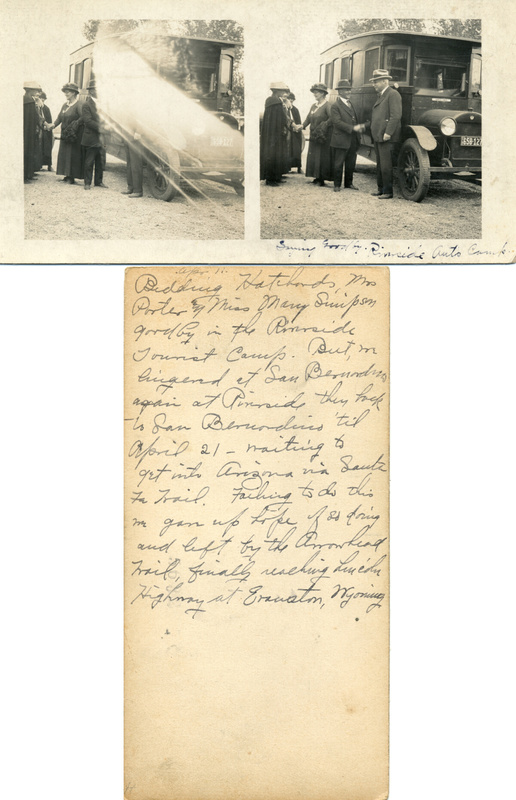 Riverside Auto Camp.
Bidding Hatchords, Mrs
Porter & Miss Mary Simpson
goodby in the Riverside
Tourist Camp. But, we
lingered at San Bernardino
again at Riverside then back
to San Bernardino 'til
April 21 - waiting to
get into Arizona via Santa
Fe Trail. Failing to do this
we gave up hope of so doing
and left by the Arrowhead
Trail, finally reaching Lincoln
Highway at Evanston, Wyoming